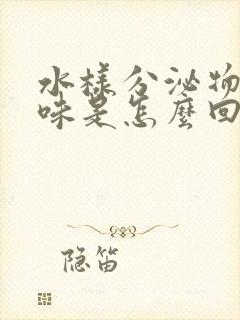 水様分泌物
味是怎麼回
隐笛